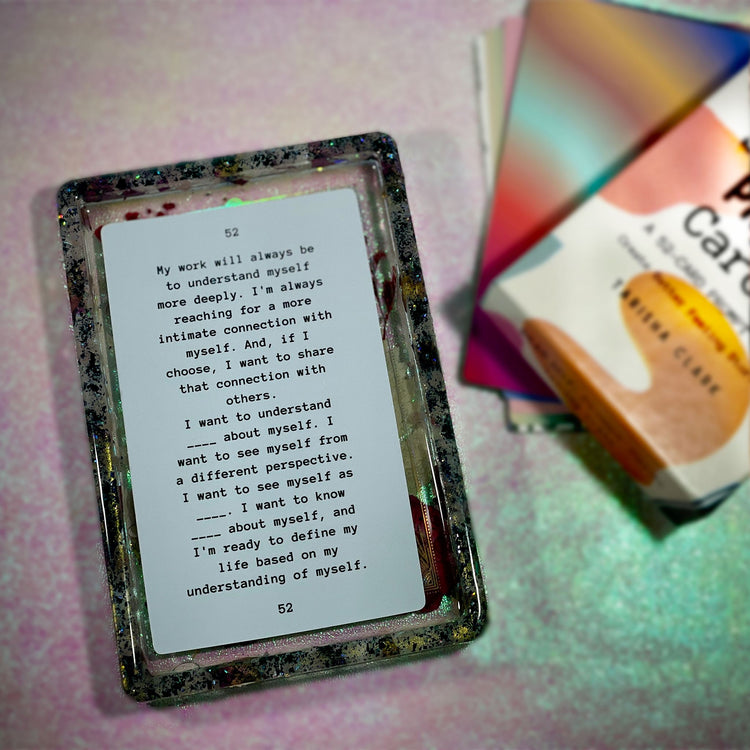 52
My work will always be
to understand myself
more deeply. I'm always
reaching for a more
intimate connection with
myself. And, if I
choose, I want to share
that connection with
others.
I want to understand
____ about myself. I
want to see myself from
a different perspective.
I want to see myself as
____. I want to know
____ about myself, and
I'm ready to define my
life based on my
understanding of myself.
52
A 52-CARD
TABISHA CLARK